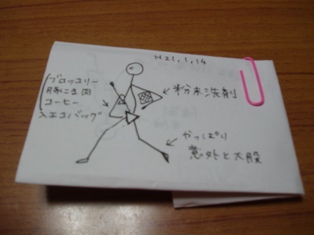 H21.1.14
ブロッコリー
豚こま肉
コーヒー
入エコバッグ
粉末洗剤
やっぱり
意外と大股